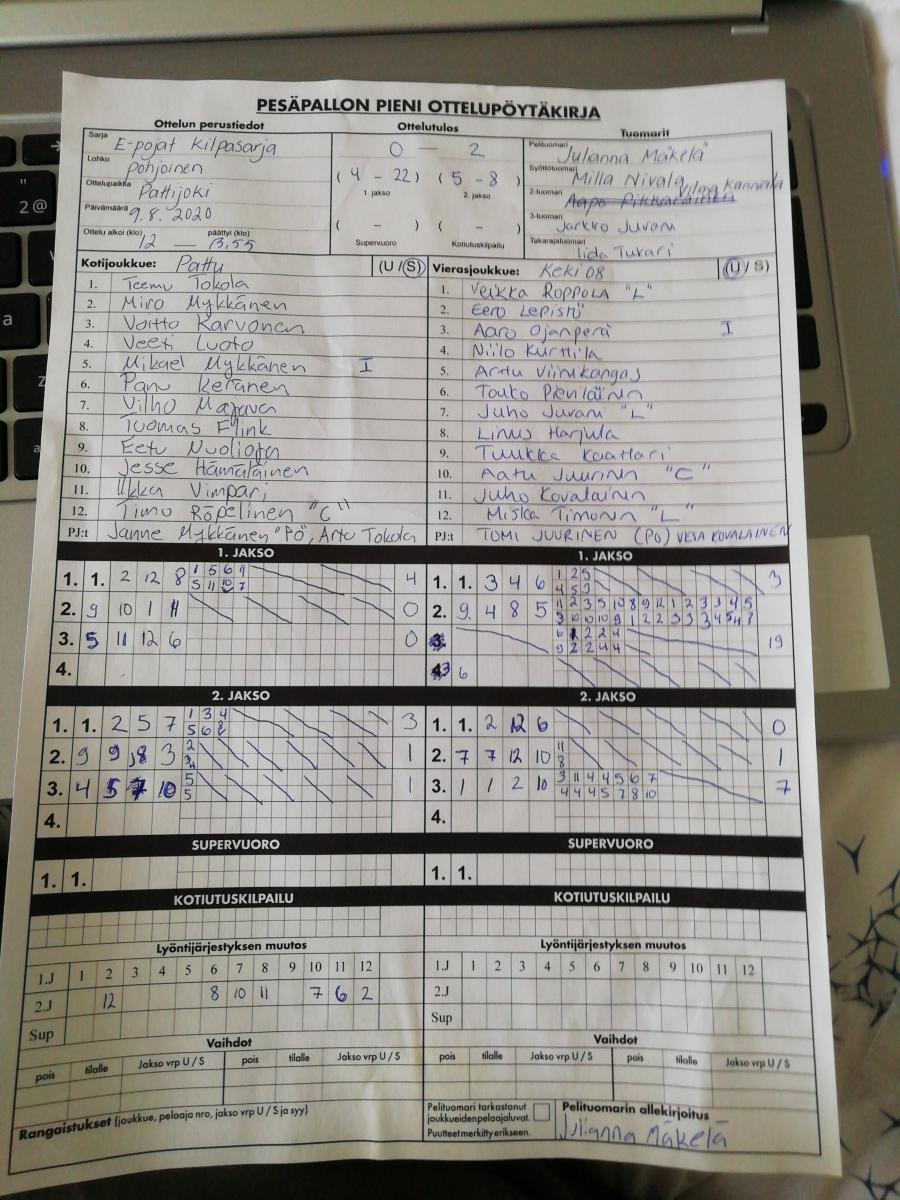 PESÄPALLON PIENI OTTELUPÖYTÄKIRJA
Ottelun perustiedot
Sarja
E-pojat Kilpasarja
Lohko
pohjoinen
Ottelupaikka
Pattijoki
Päivämäärä
9.8.2020
Ottelu alkoi (klo) päättyi (klo)
12 — 13,55
Ottelutulos
0 — 2
( 4 - 22 ) ( 5 - 8 )
1. jakso 2. jakso
( - ) ( - )
Supervuoro Kotiutuskilpailu
Tuomarit
Pelituomari
Julianna Mäkelä
Syöttötuomari
Milla Nivala
2-tuomari
Aapo Pikkarainen
3-tuomari
Jarkko Juvani
Takarajatuomari
Iida Tukari
Kotijoukkue: Pattu (U / S)
1. Teemu Tokola
2. Miro Mykkänen
3. Voitto Karvonen
4. Veeti Luoto
5. Mikael Mykkänen I
6. Panu Keränen
7. Vilho Majava
8. Tuomas Flink
9. Eetu Nuolioja
10. Jesse Hämäläinen
11. Ilkka Vimpari
12. Timo Röpelinen "C"
PJ:t Janne Mykkänen "PO", Arto Tokola
Vierasjoukkue: Keki 08 (U / S)
1. Veikka Roppola "L"
2. Eero Lepistö
3. Aaro Ojanperä I
4. Niilo Kurttila
5. Arttu Viirukangas
6. Touko Pieniläinen
7. Juho Juvani "L"
8. Linus Harjula
9. Tuukka Kaattari
10. Aatu Juurinen "C"
11. Juho Kovalainen
12. Miska Timonen "L"
PJ:t TOMI JUURINEN (PO) VESA KOVALAINEN
1. JAKSO
1. 1. 2 12 8 1 5 6 7 4
5 11 10 7
2. 9 10 1 11 0
3. 5 11 12 6 0
4.
1. JAKSO
1. 1. 3 4 6 1 2 5 3
4 5 3
2. 9 4 8 5 11 2 3 5 10 8 9 12 1 2 3 3 4 5
3 10 10 10 9 1 2 2 3 3 3 4 5 4 8
6 1 2 2 4 19
9 2 2 4 4
3 6
2. JAKSO
1. 1. 2 5 7 1 3 4 3
5 6 8
2. 9 9 8 3 2 1
3. 4 5 10 5 1
5
4.
2. JAKSO
1. 1. 2 12 6 0
2. 7 7 12 10 11 1
8
3. 1 1 2 10 3 11 4 4 5 6 7 7
4 4 4 5 7 8 10
4.
SUPERVUORO
1. 1.
SUPERVUORO
1. 1.
KOTIUTUSKILPAILU
KOTIUTUSKILPAILU
Lyöntijärjestyksen muutos
1.J 1 2 3 4 5 6 7 8 9 10 11 12
2.J 12 8 10 11 7 6 2
Sup
Lyöntijärjestyksen muutos
1.J 1 2 3 4 5 6 7 8 9 10 11 12
2.J
Sup
Vaihdot
pois tilalle Jakso vrp U / S pois tilalle Jakso vrp U / S
Vaihdot
pois tilalle Jakso vrp U / S pois tilalle Jakso vrp U / S
Rangaistukset (joukkue, pelaaja nro, jakso vrp U / S ja syy)
Pelituomari tarkastanut
joukkueidenpelaajaluvat.
Puutteet merkitty erikseen.
Pelituomarin allekirjoitus
Julianna Mäkelä